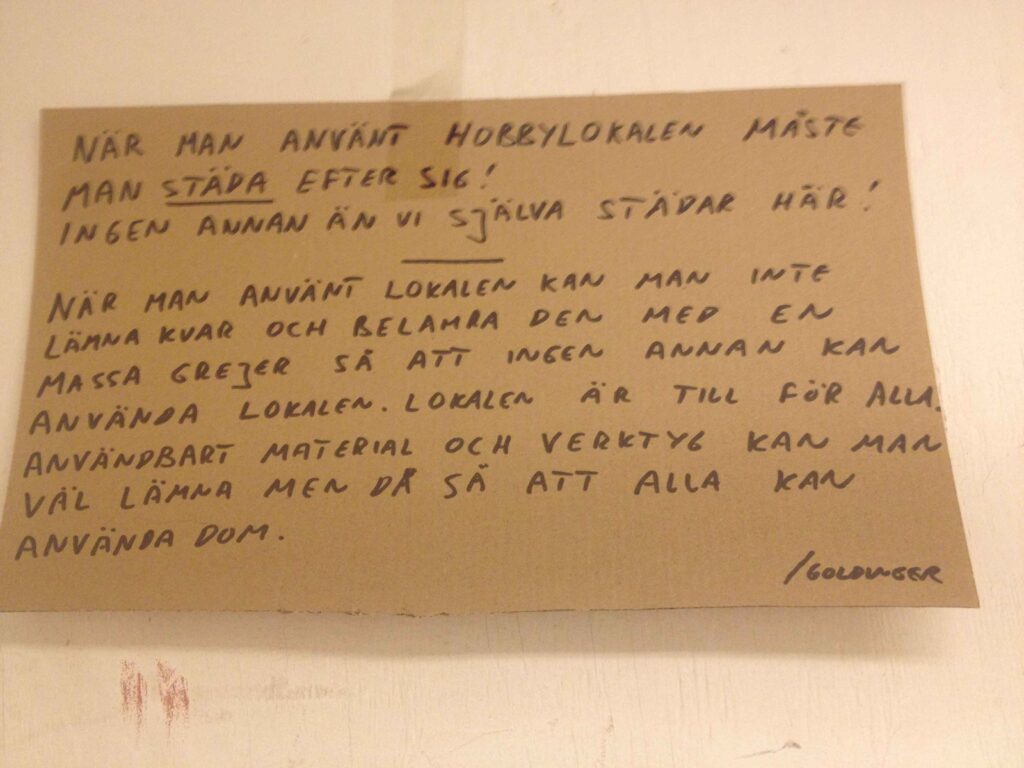 NÄR MAN ANVÄNT HOBBYLOKALEN MÅSTE
MAN STÄDA EFTER SIG!
INGEN ANNAN ÄN VI SJÄLVA STÄDAR HÄR!
NÄR MAN ANVÄNT LOKALEN KAN MAN INTE
LÄMNA KVAR OCH BELAMRA DEN MED EN
MASSA GREJER SÅ ATT INGEN ANNAN KAN
ANVÄNDA LOKALEN. LOKALEN ÄR TILL FÖR ALLA.
ANVÄNDBART MATERIAL OCH VERKTYG KAN MAN
VÄL LÄMNA MEN DÅ SÅ ATT ALLA KAN
ANVÄNDA DOM.